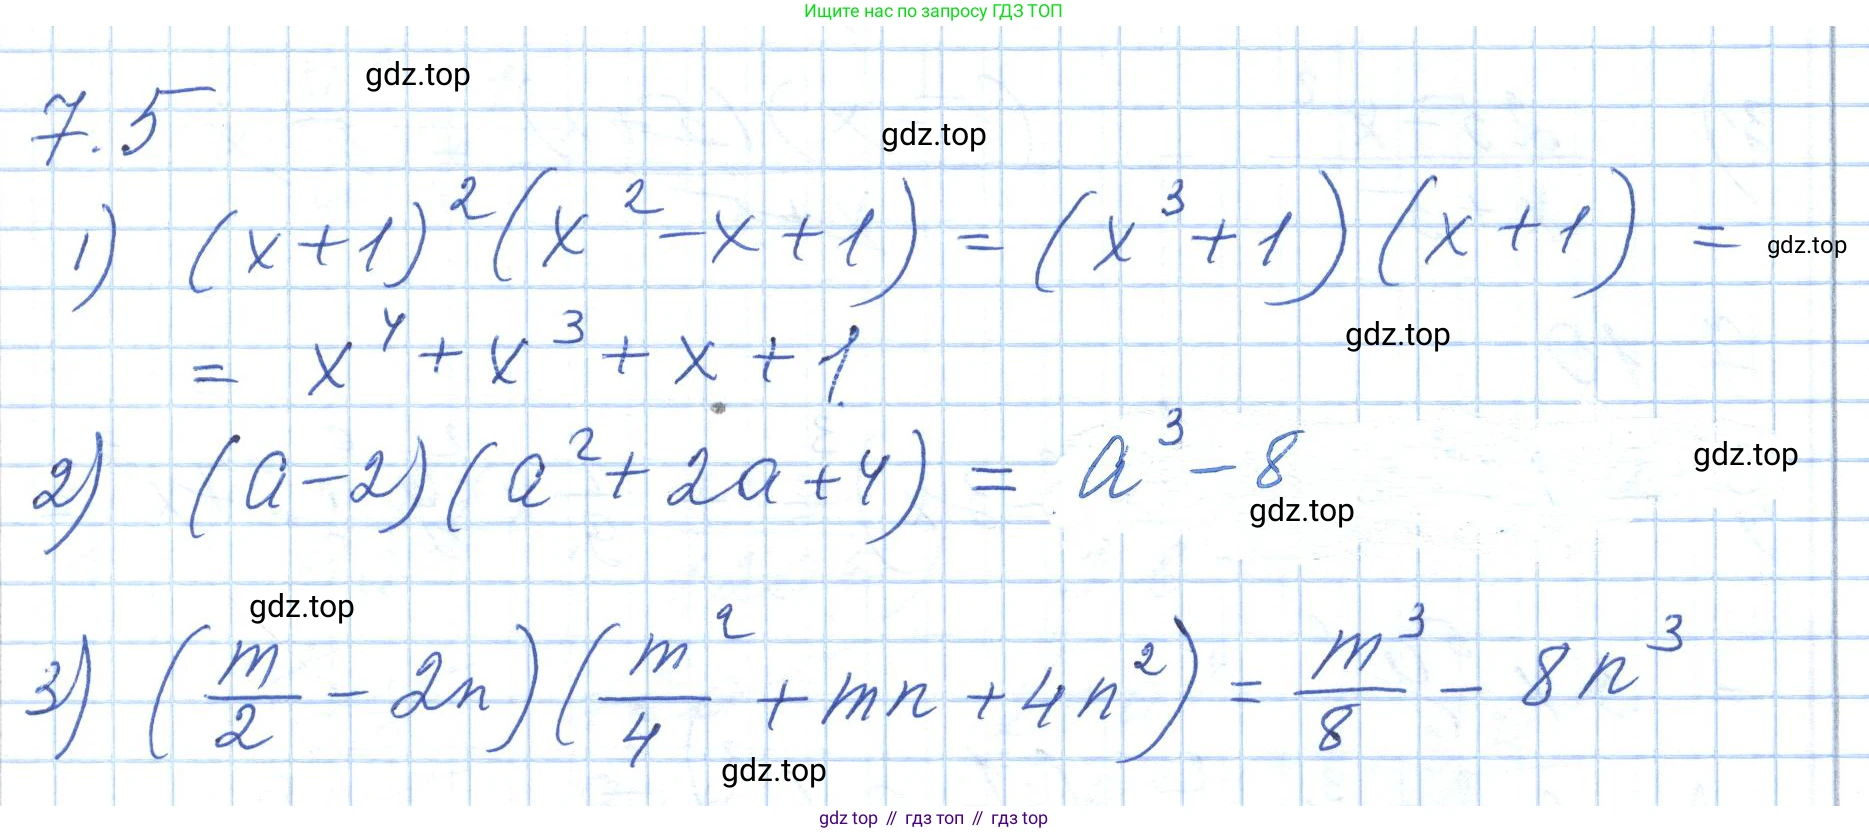 Ищите нас по запросу ГДЗ ТОП
gdz.top
7.5
gdz.top
1) (x+1)²(x²-x+1) = (x³+1)(x+1) =
gdz.top
= x⁴ + x³ + x + 1.
gdz.top
2) (a-2)(a²+2a+4) = a³-8
gdz.top
gdz.top
gdz.top
3) (m/2 - 2n)(m²/4 + mn + 4n²) = m³/8 - 8n³
gdz.top
gdz.top // гдз топ // гдз top